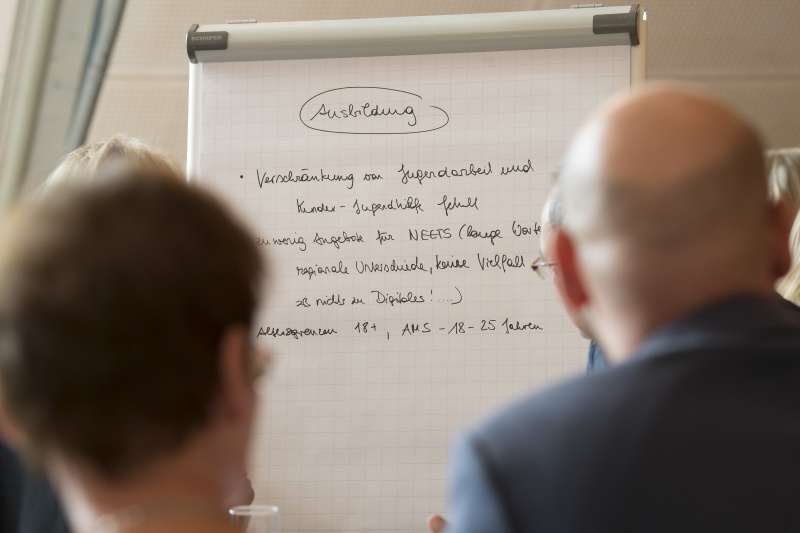 SCHÄFER
Ausbildung
• Verschränkung von Jugendarbeit und
Kinder- Jugendhilfe fehlt
zu wenig Angebote für NEETS (lange Warte
regionale Unterschiede, keine Vielfalt
zB nichts im Digitales! ....)
Altersgrenzen 18+, AMS - 18 - 25 Jahren